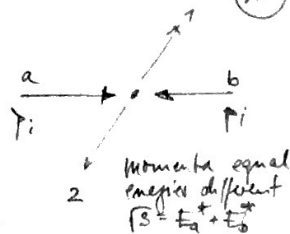 1
a
b
p⃗i
p⃗i
2
momenta equal
energies different
√s = Ea* + Eb*